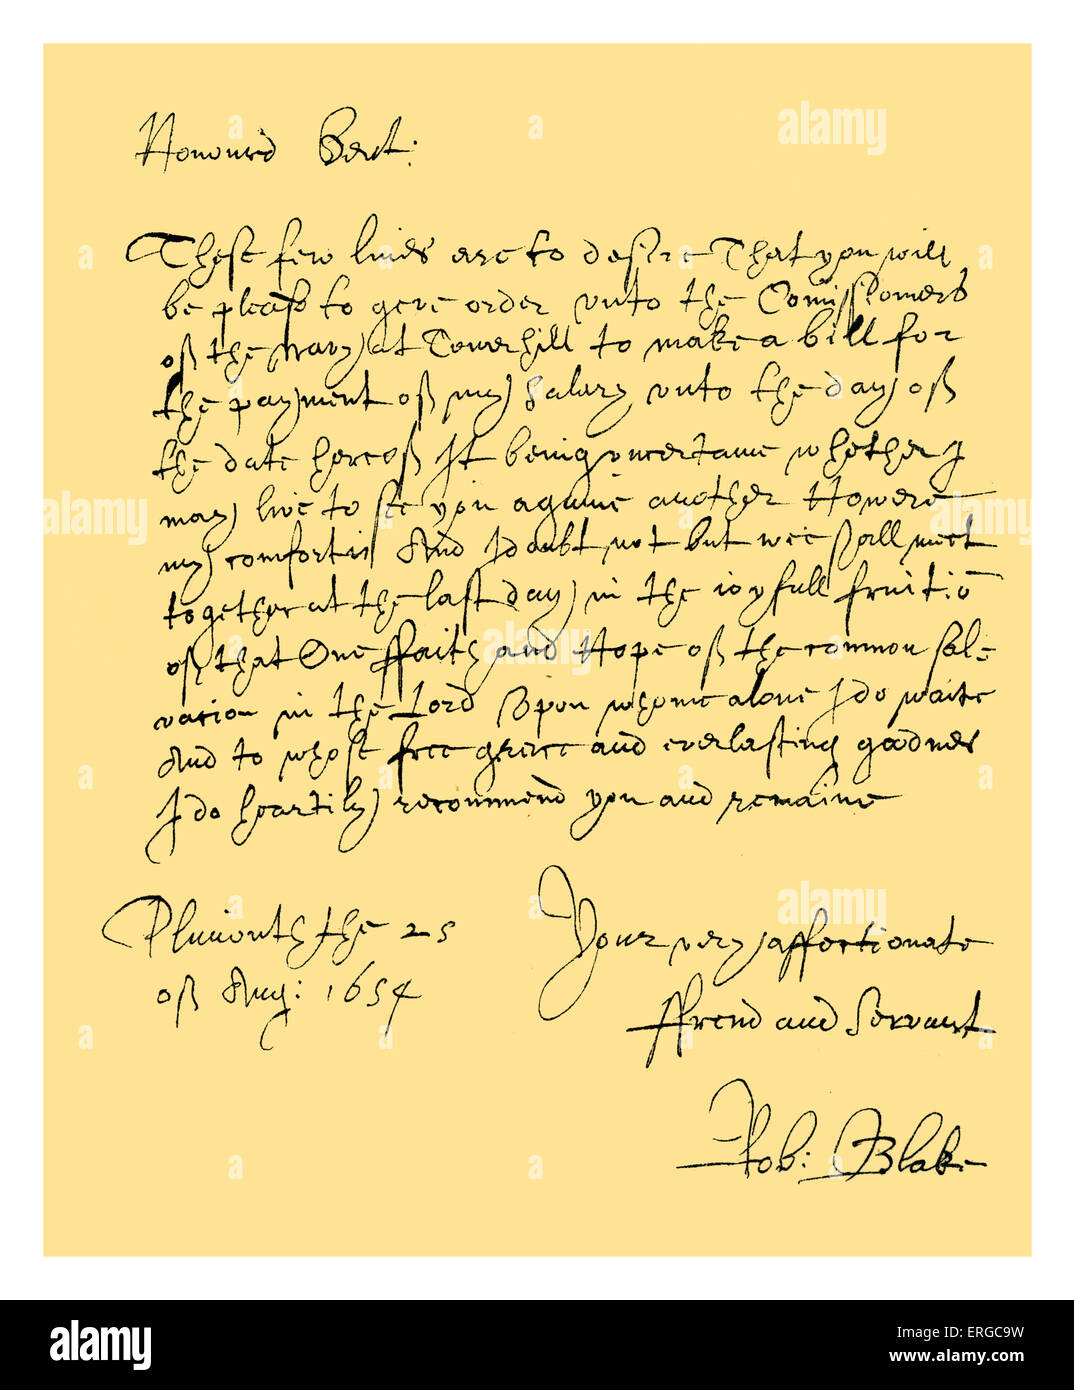 Honoured Gent:
These few lines are to desire That you will
be please to geve order unto the Comissioners
off the navy at Towerhill to make a bill for
the payment off my Salary unto the day off
the date hereoff It being uncertaine whether I
may live to see you againe another Howere
my comfort is And I doubt not but wee shall meet
together at the last day in the ioyfull fruitiō
off that One ffaith and Hope off the common sal=
vation in the Lord Upon whome alone I do waite
And to whose free grace and everlasting goodnes
I do heartily recommend you and remaine
Plimouth the 25
off Aug: 1654
Your very affectionate
ffreind and Servant
Rob: Blake
alamy
Image ID: ERGC9W
www.alamy.com